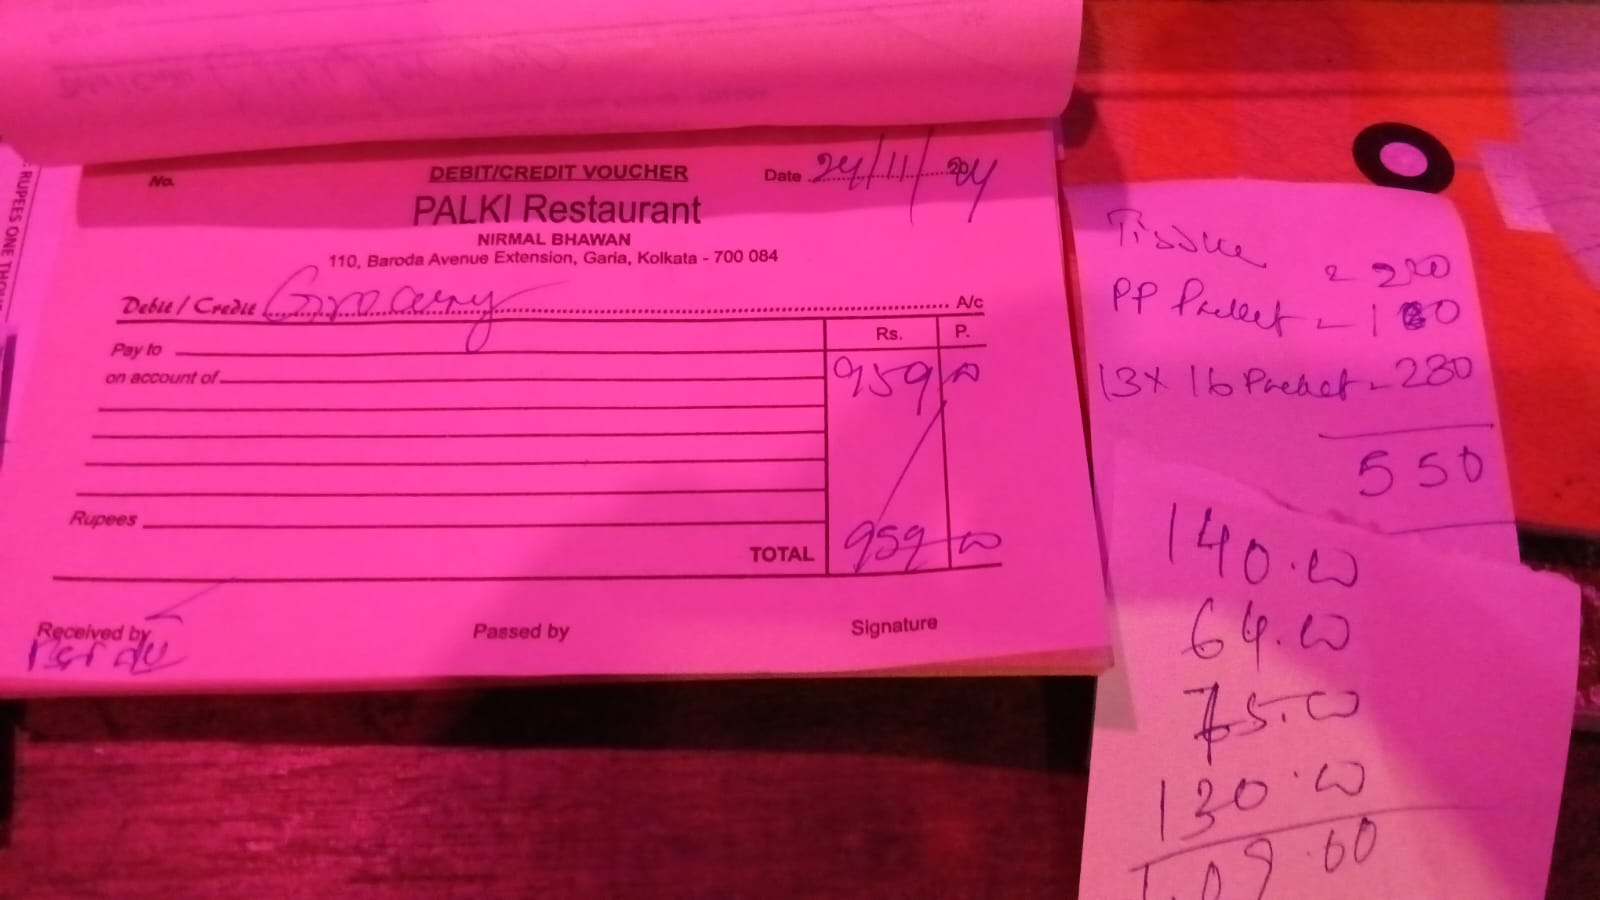 : RUPEES ONE THOU
No.
DEBIT/CREDIT VOUCHER
Date 24/11/2024
PALKI Restaurant
NIRMAL BHAWAN
110, Baroda Avenue Extension, Garia, Kolkata - 700 084
Debit / Credit Grocery A/c
Rs. P.
Pay to
on account of 959 00
Rupees
TOTAL 959 00
Received by
Passed by
Signature
Tissue
PP Packet - 100
13 x 16 Packet - 230
550
140.00
64.00
75.00
130.00